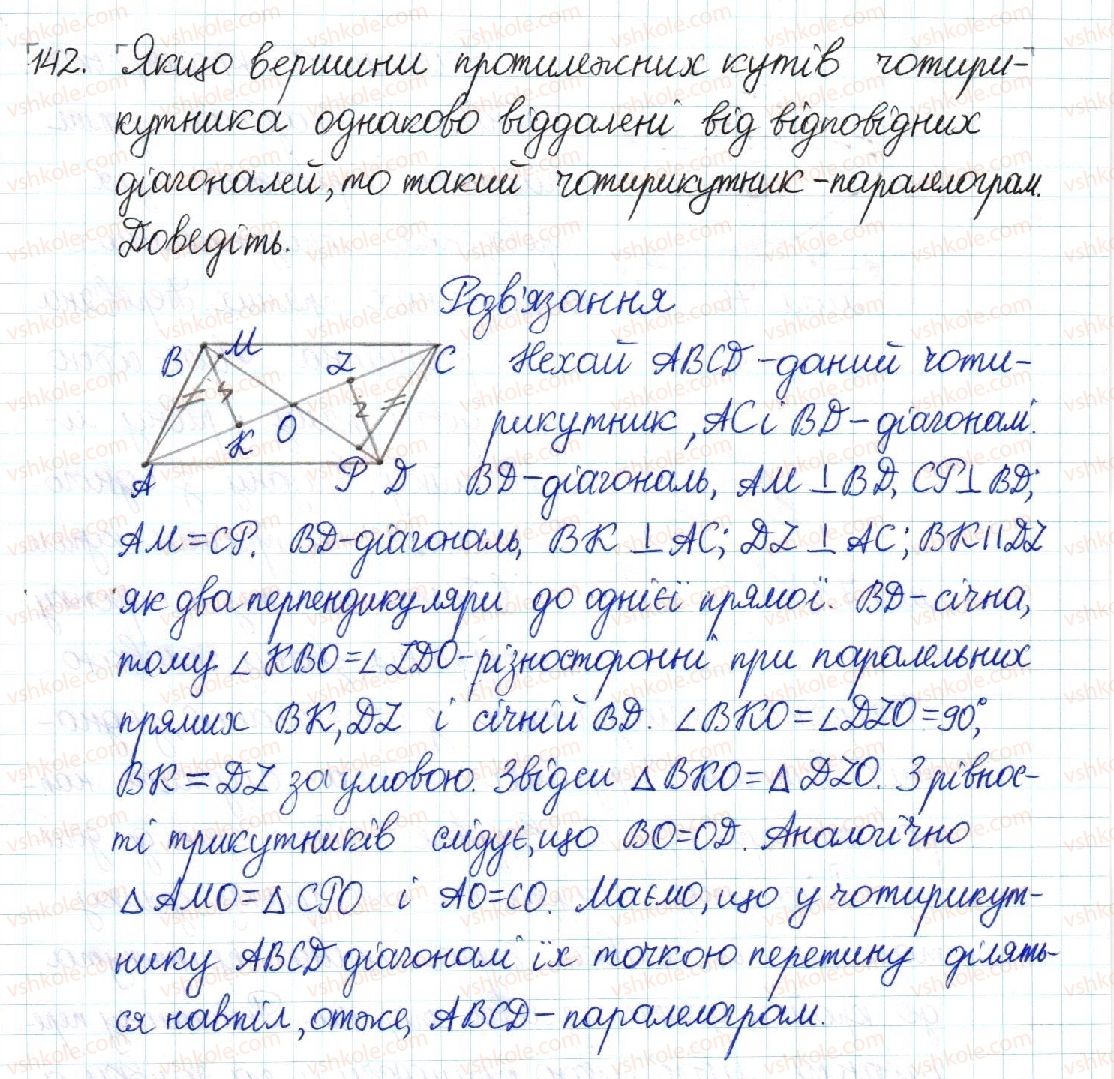 142. Якщо вершини протилежних кутів чотири-
кутника однаково віддалені від відповідних
діагоналей, то такий чотирикутник - паралелограм.
Доведіть.
Розв'язання
B M Z C
K O
A P D
Нехай ABCD - даний чоти-
рикутник, AC і BD - діагоналі.
BD - діагональ, AM ⊥ BD, CP ⊥ BD;
AM = CP. BD - діагональ, BK ⊥ AC; DZ ⊥ AC; BK || DZ
як два перпендикуляри до однієї прямої. BD - січна,
тому ∠KBO = ∠ZDO - різносторонні при паралельних
прямих BK, DZ і січній BD. ∠BKO = ∠DZO = 90°,
BK = DZ за умовою. Звідси △BKO = △DZO. З рівнос-
ті трикутників слідує, що BO = OD. Аналогічно
△AMO = △CPO і AO = CO. Маємо, що у чотирикут-
нику ABCD діагоналі їх точкою перетину ділять-
ся навпіл, отже, ABCD - паралелограм.
vshkole.com